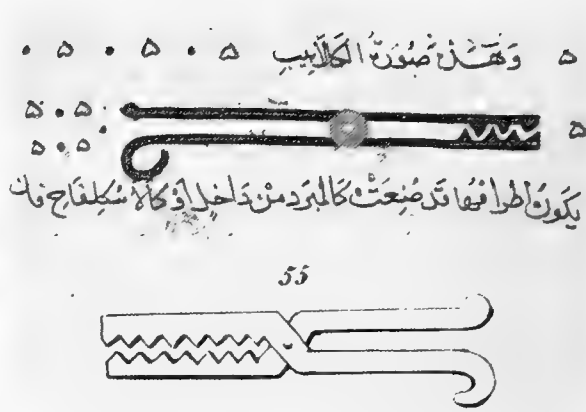 وهذه صورة الكلاليب
يكون اطرافها قد صنعت كالمبرد من داخل او كالاسكلفاج فان
55